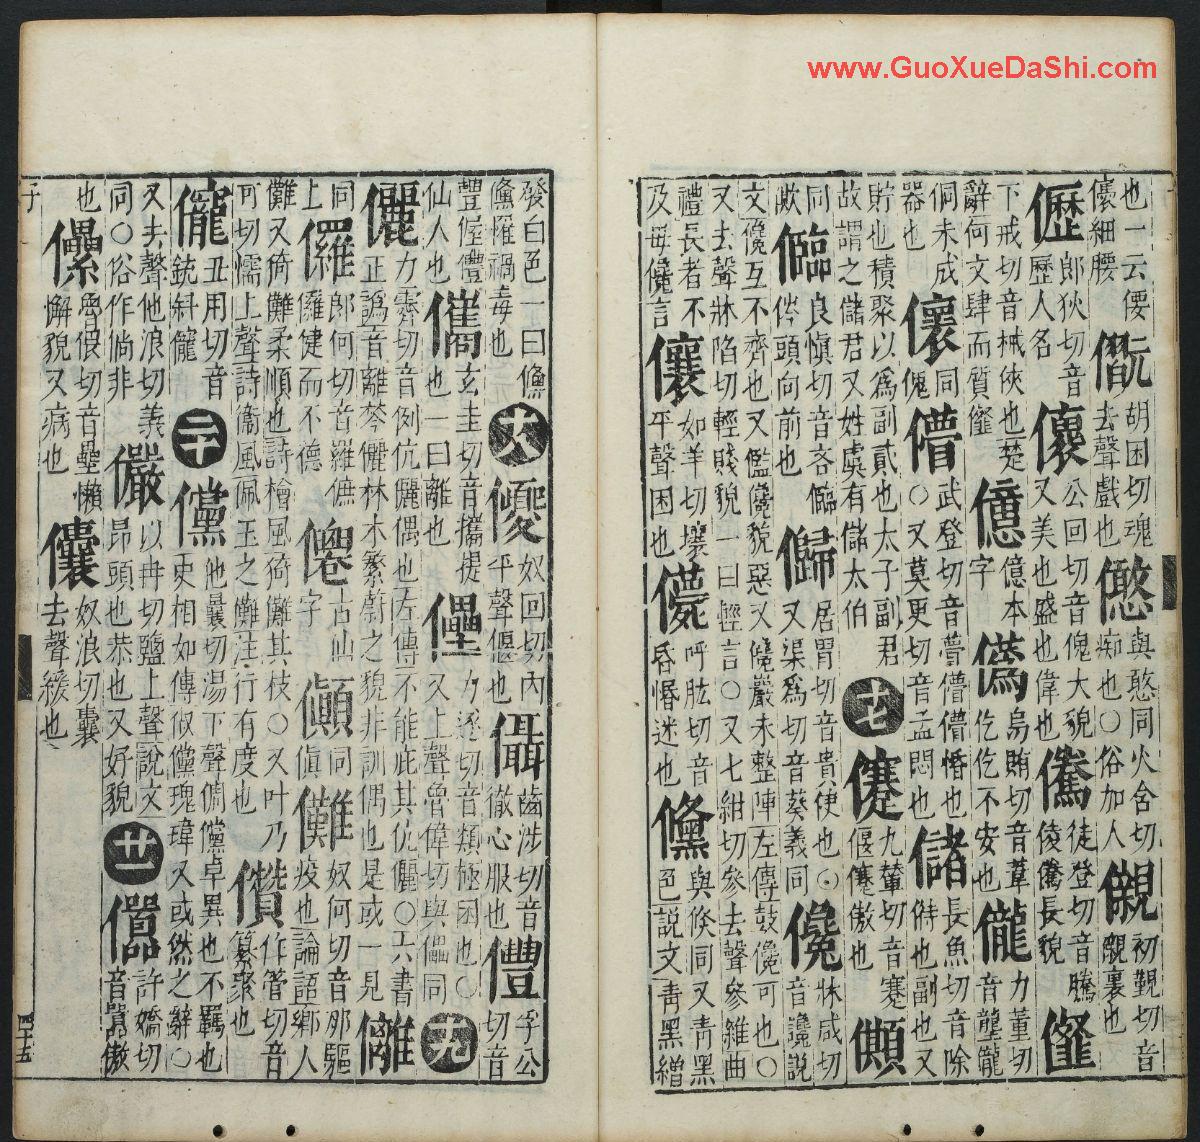 也一云偠儴細腰 胡困切魂去聲戲也 與憨同火含切痴也○俗加人 儭 初覲切音儭裏也
儮 郎狄切音歷人名 公回切音傀大貌又美也盛也偉也 儯 徒登切音騰倰儯長貌
下戒切音械俠也楚辭何文肆而質 億本字 烏賄切音葦仡仡不安也 儱 力董切音壟儱
侗未成器也 同傀 儚 武登切音瞢儚儚惛也○又莫更切音孟悶也 儲 長魚切音除偫也副也又
貯也積聚以爲副貳也太子副君故謂之儲君又姓虞有儲太伯 十七 九輦切音蹇偃蹇傲也
良慎切音吝頭向前也 居胃切音貴使也○又渠爲切音葵義同 儳 牀咸切音讒說
文儳互不齊也又儖儳貌惡又儳巖未整陣左傳鼓儳可也○又去聲牀陷切輕賤貌一曰輕言○又七紺切參去聲參雜曲
禮長者不及毋儳言 儴 如羊切壤平聲困也 呼肱切音昏惽迷也 儵 與倏同又青黑色說文青黑繒
發白色一曰儵儵罹禍毒也 十八 奴回切內平聲偃也 㒤 齒涉切音徹心服也 孚公切音
豐偓仙人也 儶 玄圭切音攜提也一曰離也 儽 力遂切音類極困也○又上聲魯偉切與儡同 十九
儷 力霽切音例伉儷偶也左傳不能庇其伉儷○六書正譌音離棽儷林木繁蔚之貌非訓偶也是或一見 離
同上 儸 郎何切音羅健而不德 古仙字 傎 同傎 儺 奴何切音那驅疫也論語鄉人
儺又倚儺柔順也詩檜風猗儺其枝○又叶乃可切懦上聲詩衞風佩玉之儺注行有度也 儹 作管切音纂聚也
丑用切音銃斜 二十 儻 他曩切湯下聲倜儻卓異也不羈也更相如傳俶儻瑰瑋又或然之辭○
又去聲他浪切義同○俗作倘非 儼 以冉切鹽上聲說文昂頭也恭也又好貌 廿一 許嬌切音囂傲
也 儽 魯偎切音壘懶懈貌又病也 儾 奴浪切囊去聲緩也
子
四十五
www.GuoXueDaShi.com